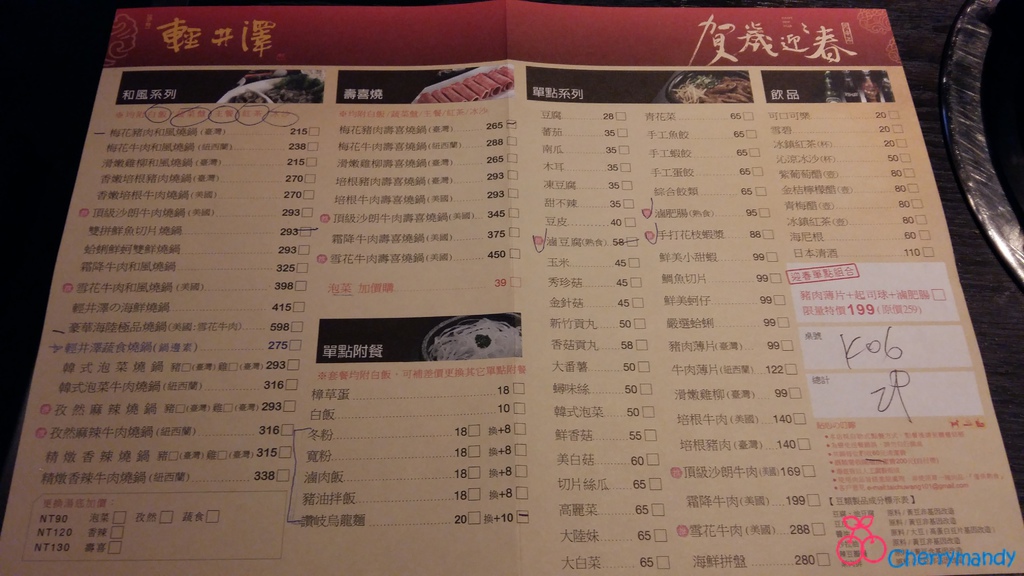 輕井澤
賀歲迎春
和風系列
均附白飯/蔬菜盤/主餐/紅茶/冰沙
梅花豬肉和風燒鍋(臺灣) 215
梅花牛肉和風燒鍋(紐西蘭) 238
滑嫩雞柳和風燒鍋(臺灣) 215
香嫩培根豬肉燒鍋(臺灣) 270
香嫩培根牛肉燒鍋(美國) 270
頂級沙朗牛肉燒鍋(美國) 293
雙拼鮮魚切片燒鍋 293
蛤蜊鮮蚵雙鮮燒鍋 293
霜降牛肉和風燒鍋 325
雪花牛肉和風燒鍋 398
輕井澤の海鮮燒鍋 415
豪華海陸極品燒鍋(美國:雪花牛肉) 598
輕井澤蔬食燒鍋(鍋邊素) 275
韓式泡菜燒鍋 豬(臺灣)雞(臺灣) 293
韓式泡菜牛肉燒鍋(紐西蘭) 316
孜然麻辣燒鍋 豬(臺灣)雞(臺灣) 293
孜然麻辣牛肉燒鍋(紐西蘭) 316
精燉香辣燒鍋 豬(臺灣)雞(臺灣) 315
精燉香辣牛肉燒鍋(紐西蘭) 338
更換湯底加價:
NT90 泡菜 孜然 蔬食
NT120 香辣
NT130 壽喜
壽喜燒
均附白飯/蔬菜盤/主餐/紅茶/冰沙
梅花豬肉壽喜燒鍋(臺灣) 265
梅花牛肉壽喜燒鍋(紐西蘭) 288
滑嫩雞柳壽喜燒鍋(臺灣) 265
培根豬肉壽喜燒鍋(臺灣) 293
培根牛肉壽喜燒鍋(美國) 293
頂級沙朗牛肉壽喜燒鍋(美國) 345
霜降牛肉壽喜燒鍋(美國) 375
雪花牛肉壽喜燒鍋(美國) 450
泡菜 加價購 39
單點附餐
※套餐均附白飯,可補差價更換其它單點附餐
樟草蛋 18
白飯 10
冬粉 18 換+8
寬粉 18 換+8
滷肉飯 18 換+8
豬油拌飯 18 換+8
讚岐烏龍麵 20 換+10
單點系列
豆腐 28
蕃茄 35
南瓜 35
木耳 35
凍豆腐 35
甜不辣 35
豆皮 40
滷豆腐(熟食) 58
玉米 45
秀珍菇 45
金針菇 45
新竹貢丸 50
香菇貢丸 58
大番薯 50
蟳味絲 50
韓式泡菜 50
鮮香菇 55
美白菇 60
切片絲瓜 65
高麗菜 65
大陸妹 65
大白菜 65
青花菜 65
手工魚餃 65
手工蝦餃 65
手工蛋餃 65
綜合餃類 65
滷肥腸(熟食) 95
手打花枝蝦漿 88
鮮美小甜蝦 99
鯛魚切片 99
鮮美蚵仔 99
嚴選蛤蜊 99
豬肉薄片(臺灣) 99
牛肉薄片(紐西蘭) 122
滑嫩雞柳(臺灣) 99
培根牛肉(美國) 140
培根豬肉(臺灣) 140
頂級沙朗牛肉(美國) 169
霜降牛肉(美國) 199
雪花牛肉(美國) 288
海鮮拼盤 280
飲品
可口可樂 20
雪碧 20
冰鎮紅茶(杯) 50
沁涼冰沙(杯) 50
紫葡萄醋(壺) 80
金桔檸檬醋(壺) 80
青梅醋(壺) 80
冰鎮紅茶(壺) 80
海尼根 60
日本清酒 110
迎春單點組合
豬肉薄片+起司球+滷肥腸
限量特價199(原價259)
桌號
K06
總計
2P
【豆類製品成分標示表】
Cherrymandy